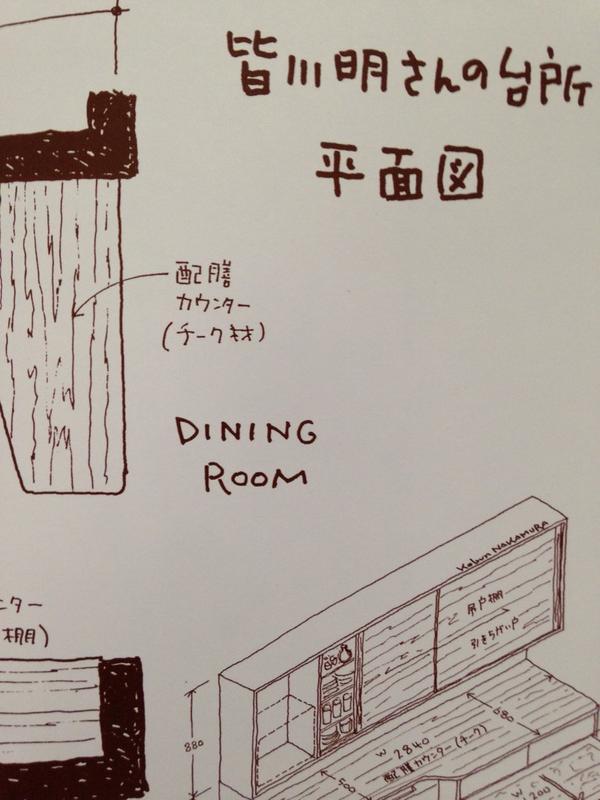 皆川明さんの台所
平面図
配膳
カウンター
(チーク材)
DINING
ROOM
ンター
棚)
Kohun NAKAMURA
吊戸棚
引きちがい戸
880
580
W 2840
配膳カウンター(チーク)
500
W
200